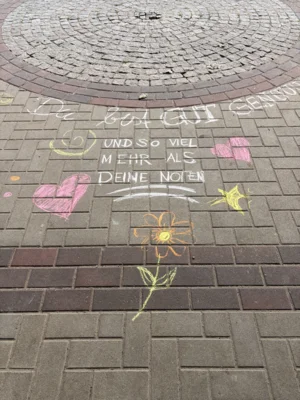 Du bist GUT GENUG
UND SO VIEL
MEHR ALS
DEINE NOTEN